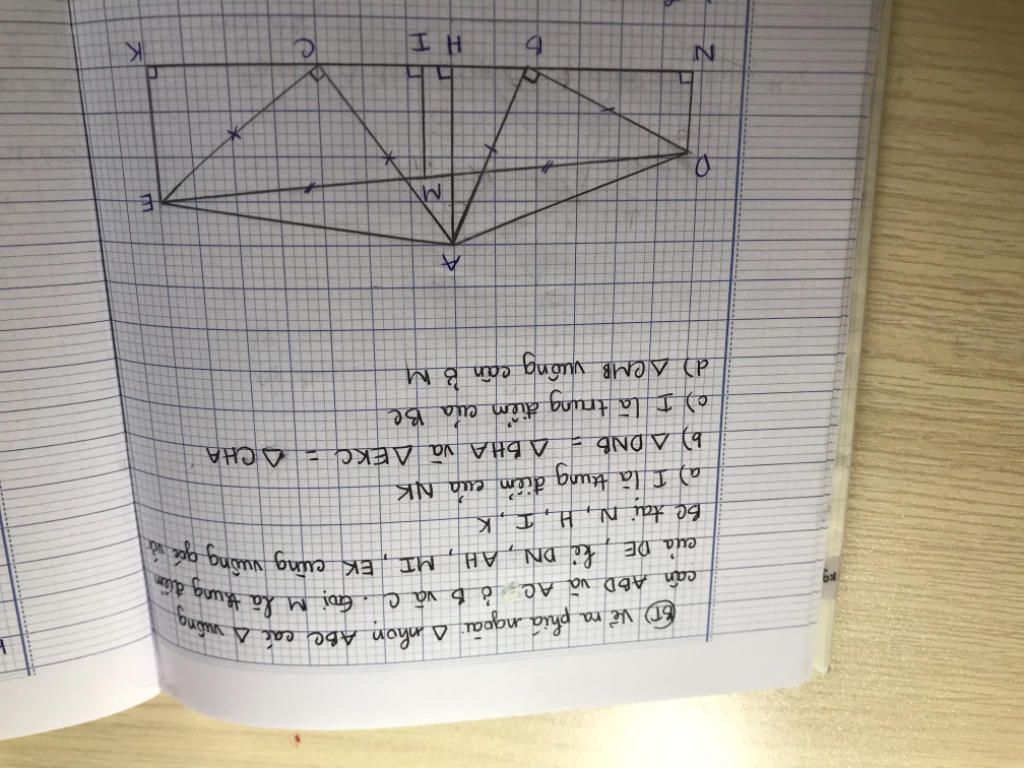 BT Vẽ ra phía ngoài Δ nhọn ABC các Δ vuông
cân ABD và ACE ở B và C. Gọi M là trung điểm
của DE, kẻ DN, AH, MI, EK cùng vuông góc với
BC tại N, H, I, K
a) I là trung điểm của NK
b) Δ DNB = Δ BHA và Δ EKC = Δ CHA
c) I là trung điểm của BC
d) Δ CMB vuông cân ở M
A
E
M
D
K
C
I
H
B
N
Kg